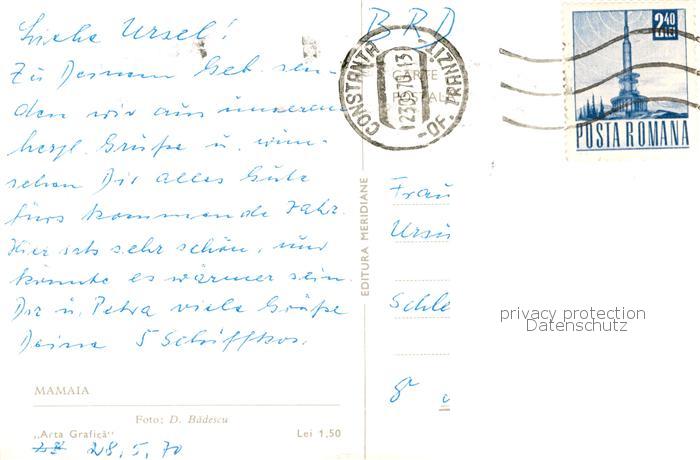 Liebe Ursel!
Zu Deinem Geb. sen-
den wir aus unseren
herzl. Grüße u. wün-
schen Dir alles Gute
fürs kommende Jahr.
Hier ists sehr schön, nur
könnte es wärmer sein.
Dir u. Petra viele Grüße
Deine 5
MAMAIA
Foto: D. Bădescu
„Arta Grafică“ Lei 1,50
28.5.70
EDITURA MERIDIANE
BRD
CARTE
POSTALĂ
CONSTANTA
-OF. TRANZIT-
2,40
LEI
POSTA ROMANA
Frau
Ursu
Schle
privacy protection
Datenschutz